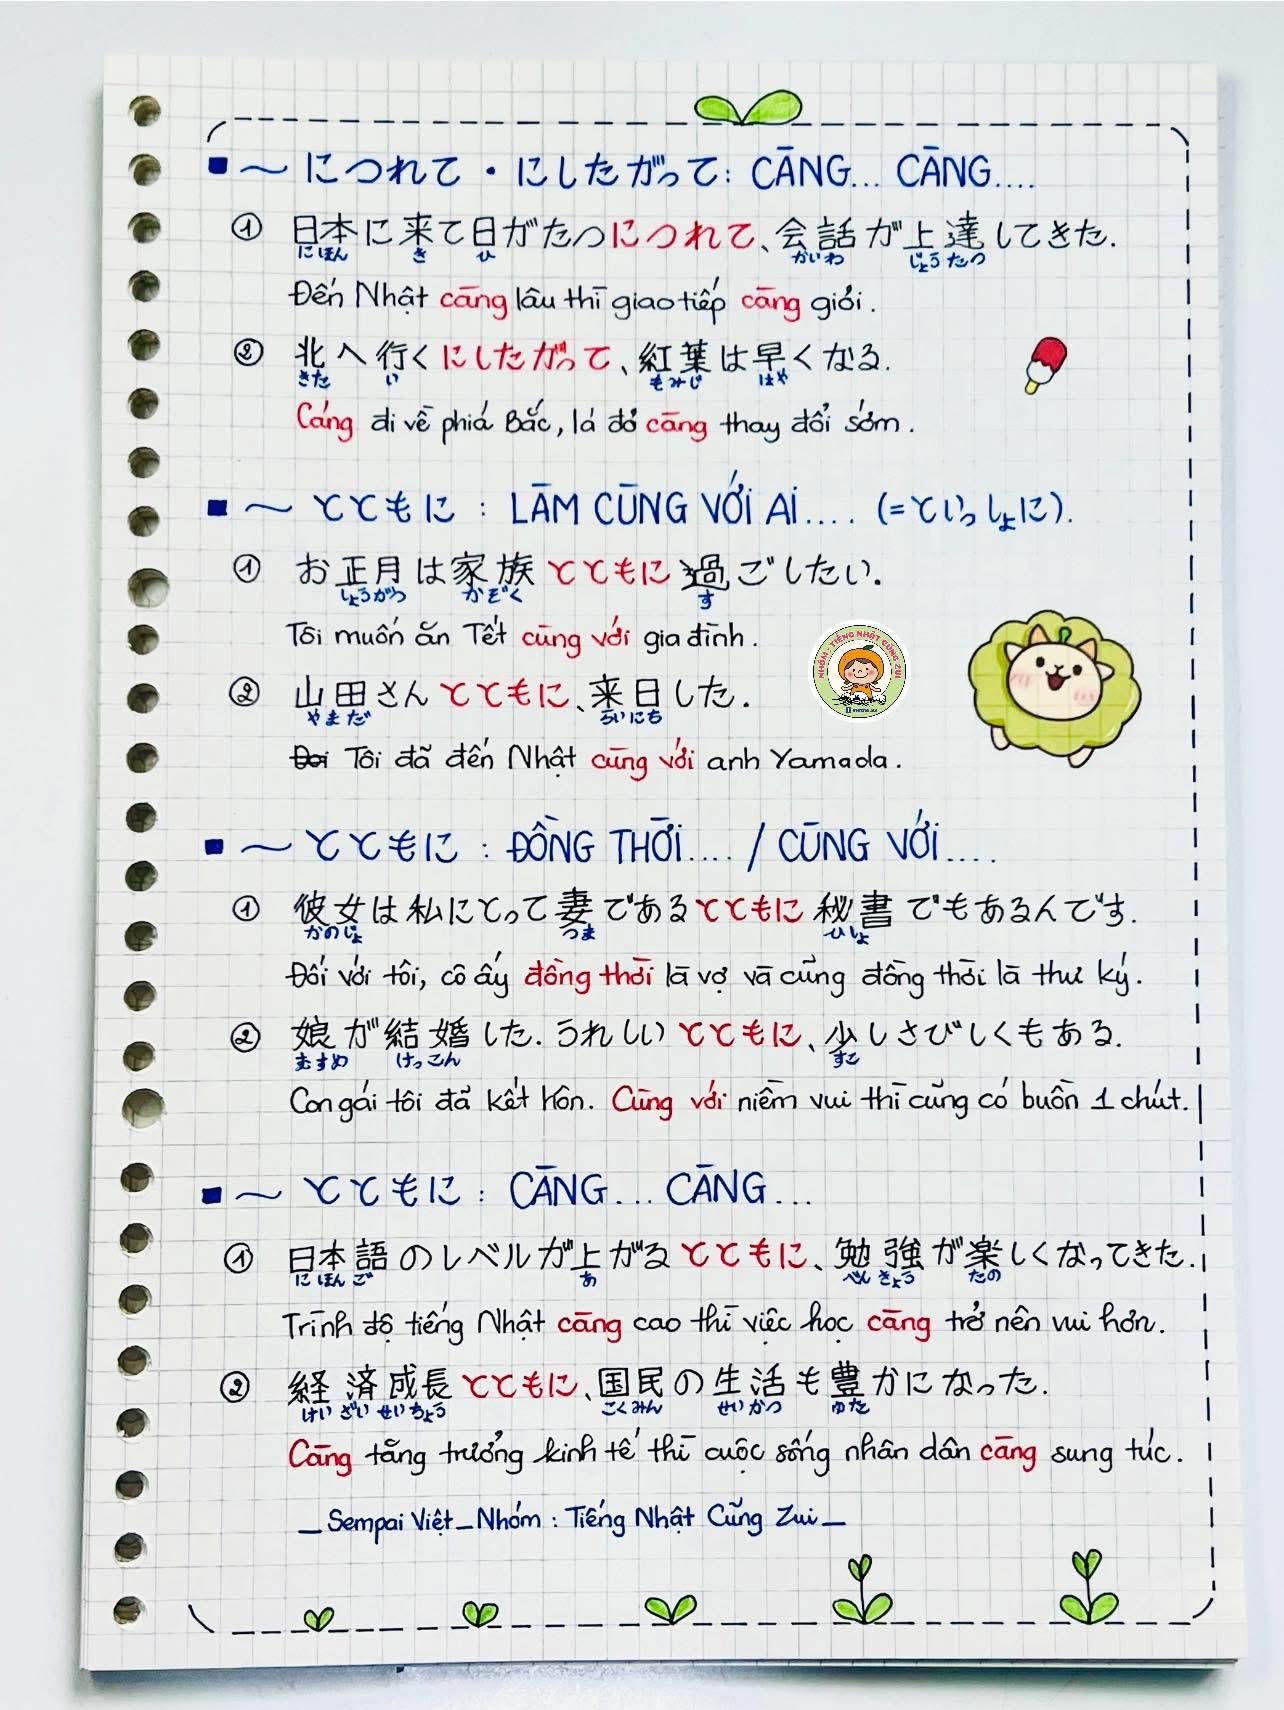 ■ ～ につれて・にしたがって: CÀNG... CÀNG....
① 日本に来て日がたつにつれて、会話が上達してきた.
にほん き ひ かいわ じょうたつ
Đến Nhật càng lâu thì giao tiếp càng giỏi.
② 北へ行くにしたがって、紅葉は早くなる.
きた い もみじ はや
Càng đi về phía Bắc, lá đỏ càng thay đổi sớm.
■ ～ とともに : LÀM CÙNG VỚI AI.... (=といっしょに).
① お正月は家族とともに過ごしたい.
しょうがつ かぞく す
Tôi muốn ăn Tết cùng với gia đình.
NHÓM - TIẾNG NHẬT CŨNG ZUI
② 山田さんとともに、来日した.
やまだ らいにち
Tôi đã đến Nhật cùng với anh Yamada.
■ ～ とともに : ĐỒNG THỜI.... / CÙNG VỚI....
① 彼女は私にとって妻であるとともに秘書でもあるんです.
かのじょ つま ひしょ
Đối với tôi, cô ấy đồng thời là vợ và cũng đồng thời là thư ký.
② 娘が結婚した. うれしいとともに、少しさびしくもある.
むすめ けっこん すこ
Con gái tôi đã kết hôn. Cùng với niềm vui thì cũng có buồn 1 chút.
■ ～ とともに : CÀNG... CÀNG...
① 日本語のレベルが上がるとともに、勉強が楽しくなってきた.
にほんご あ べんきょう たの
Trình độ tiếng Nhật càng cao thì việc học càng trở nên vui hơn.
② 経済成長とともに、国民の生活も豊かになった.
けいざいせいちょう こくみん せいかつ ゆた
Càng tăng trưởng kinh tế thì cuộc sống nhân dân càng sung túc.
_ Sempai Việt _ Nhóm : Tiếng Nhật Cũng Zui _